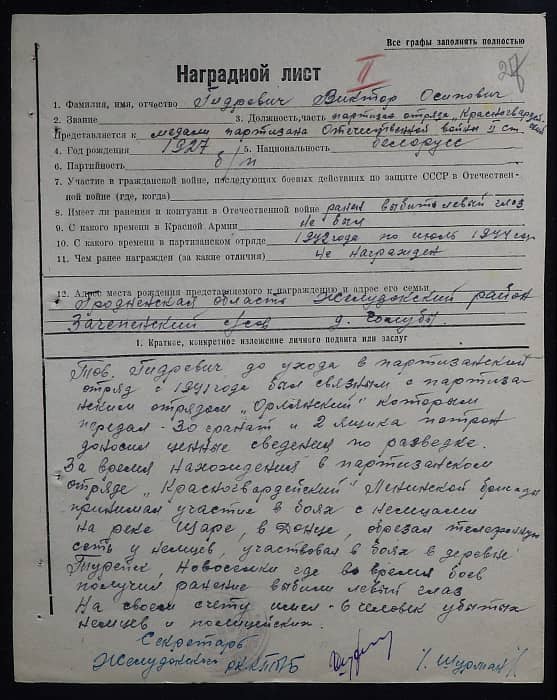 Все графы заполнять полностью
28
Наградной лист
II
1. Фамилия, имя, отчество Гидревич Виктор Осипович
2. Звание 3. Должность, часть партизан отряда „Красногвардей-
Представляется к медали партизана Отечественной войны II ст. ский"
4. Год рождения 1927 5. Национальность белорусс
6. Партийность б/п
7. Участие в гражданской войне, последующих боевых действиях по защите СССР в Отечествен-
ной войне (где, когда)
8. Имеет ли ранения и контузии в Отечественной войне ранен выбит левый глаз
9. С какого времени в Красной Армии не был
10. С какого времени в партизанском отряде 1942 года по июль 1944 год
11. Чем ранее награжден (за какие отличия) не награжден
12. Адрес места рождения представляемого к награждению и адрес его семьи
Гродненская область Желудокский район
Зачепичский с/сов д. Голубы
1. Краткое, конкретное изложение личного подвига или заслуг
Тов. Гидревич до ухода в партизанский
отряд с 1941 года был связным с партиза-
нским отрядом „Орлянский" которым
передал - 30 гранат и 2 ящика патрон
доносил ценные сведения по разведке.
За время нахождения в партизанском
отряде „Красногвардейский" Ленинской бригады
принимал участие в боях с немцами
на реке Щаре, в Донце, обрезал телефонную
сеть у немцев, участвовал в боях в деревы
Турейск, Новоселки где во время боев
получил ранение выбили левый глаз
На своем счету имел - 6 человек убитых
немцев и полицейских.
Секретарь
Желудокского РК КП(б)Б /Шурман/